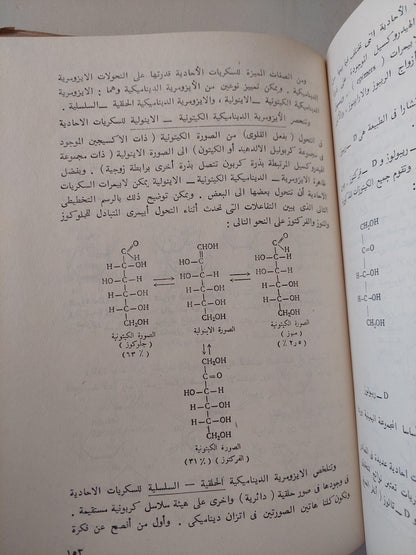 ومن الصفات المميزة للسكريات الأحادية قدرتها على التحولات الايزومرية
الديناميكية . ويمكن تمييز نوعين من الأيزومرية الديناميكية وهما : الايزومرية
الديناميكية الكيتونية — الاينولية ، والايزومرية الديناميكية الحلقية — السلسلية .
وتنحصر الأيزومرية الديناميكية الكيتونية — الاينولية للسكريات الاحادية
فى التحول ( بفعل القلوى ) من الصورة الكيتونية ( ذات الاكسيجين الموجود
فى مجموعة كربونيل الالدهيد أو الكيتون ) الى الصورة الاينولية ( ذات مجموعة
الهيدروكسيل المرتبطة بذرة كربون تتصل بذرة أخرى برابطة زوجية ) . وبفضل
ظاهرة الايزومرية الديناميكية الكيتونية — الاينولية يمكن لايمرات السكريات
الأحادية أن تتحول بعضها الى البعض . ويمكن توضيح ذلك بالرسم التخطيطى
التالى الذى يبين التفاعلات التى تحدث أثناء التحول أبيمرى المتبادل للجلوكوز
والمنوز والفركتوز على النحو التالى :
C O H
H—C—OH
HO—C—H
H—C—OH
H—C—OH
CH₂OH
الصورة الكيتونية
( جلوكوز )
( ٦٣ ٪ )
CHOH
C—OH
HO—C—H
H—C—OH
H—C—OH
CH₂OH
الصورة الاينولية
C O H
HO—C—H
HO—C—H
H—C—OH
H—C—OH
CH₂OH
الصورة الكيتونية
( منوز )
( ٢٫٥ ٪ )
CH₂OH
C=O
HO—C—H
H—C—OH
H—C—OH
CH₂OH
الصورة الكيتونية
( الفركتوز ) ( ٣١ ٪ )
وتتلخص الايزومرية الديناميكية الحلقية — السلسلية للسكريات الاحادية
فى وجودها فى صور حلقية ( دائرية ) واخرى على هيئة سلاسل كربونية مستقيمة .
وتكون كلتا هاتين الصورتين فى اتزان ديناميكى . وأول من أفصح عن فكرة
١٥٣
CH₂OH
C=O
CH₂OH